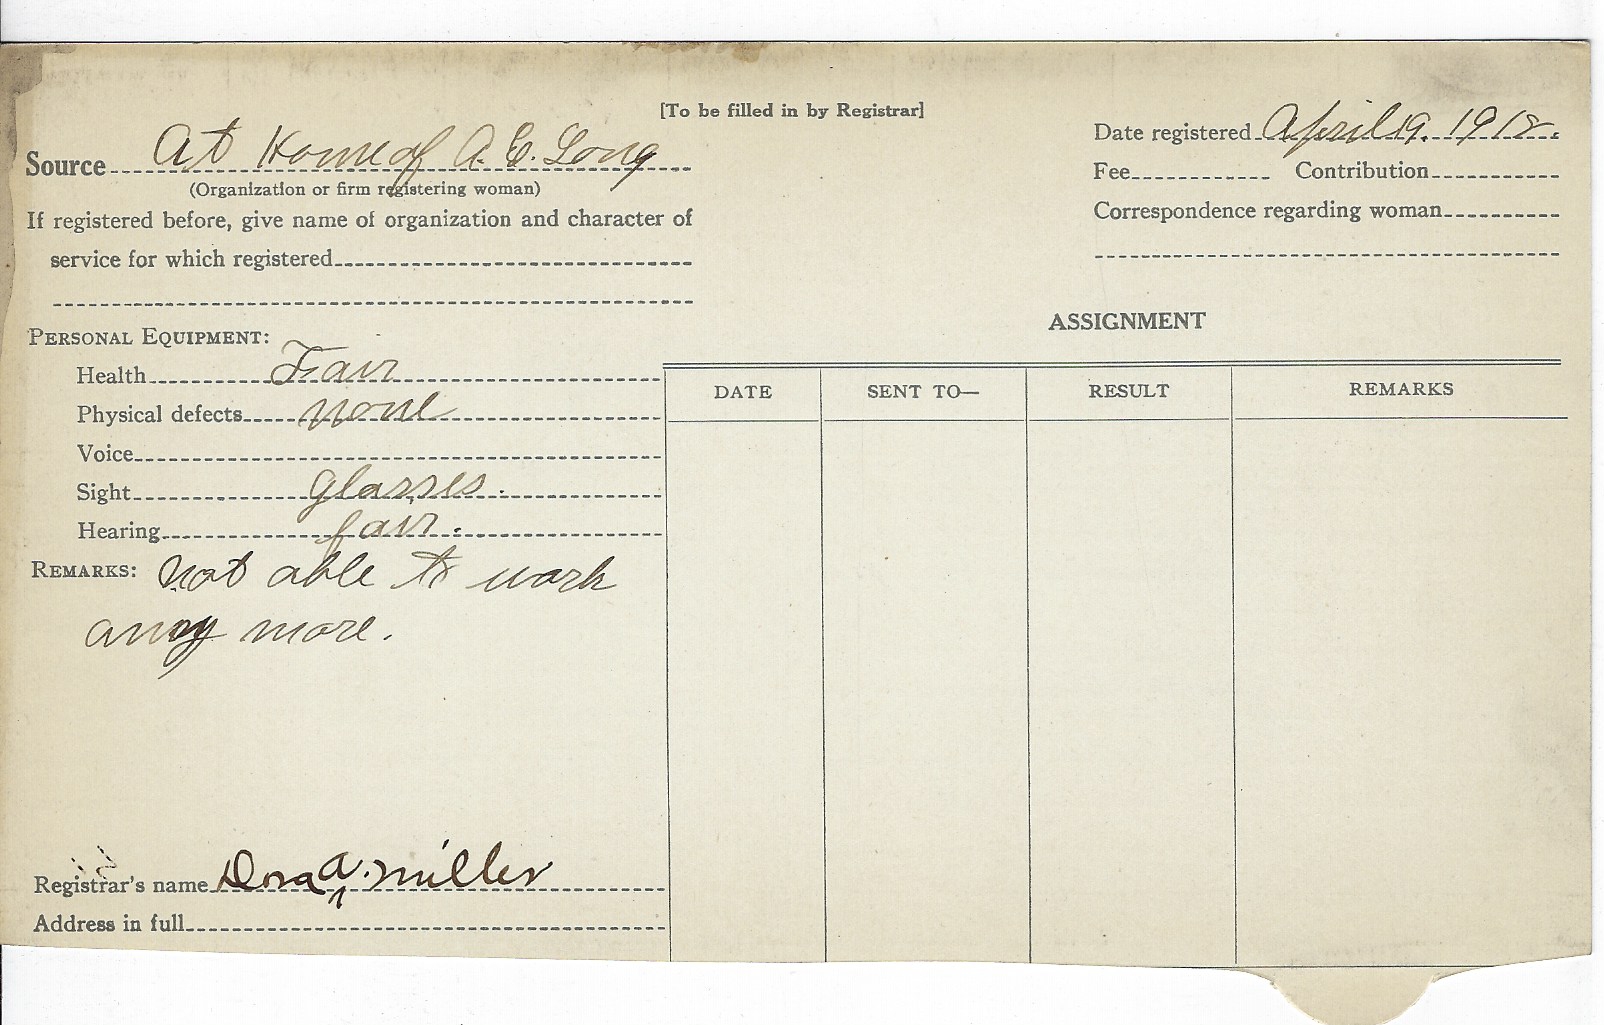 [To be filled in by Registrar]
Source At Home of A. E. Long
(Organization or firm registering woman)
If registered before, give name of organization and character of
service for which registered
Date registered April 19. 1918.
Fee Contribution
Correspondence regarding woman
PERSONAL EQUIPMENT:
Health Fair
Physical defects none
Voice
Sight glasses.
Hearing fair.
REMARKS: Not able to work
any more.
Registrar's name Dora A. Miller
Address in full
ASSIGNMENT
DATE SENT TO— RESULT REMARKS